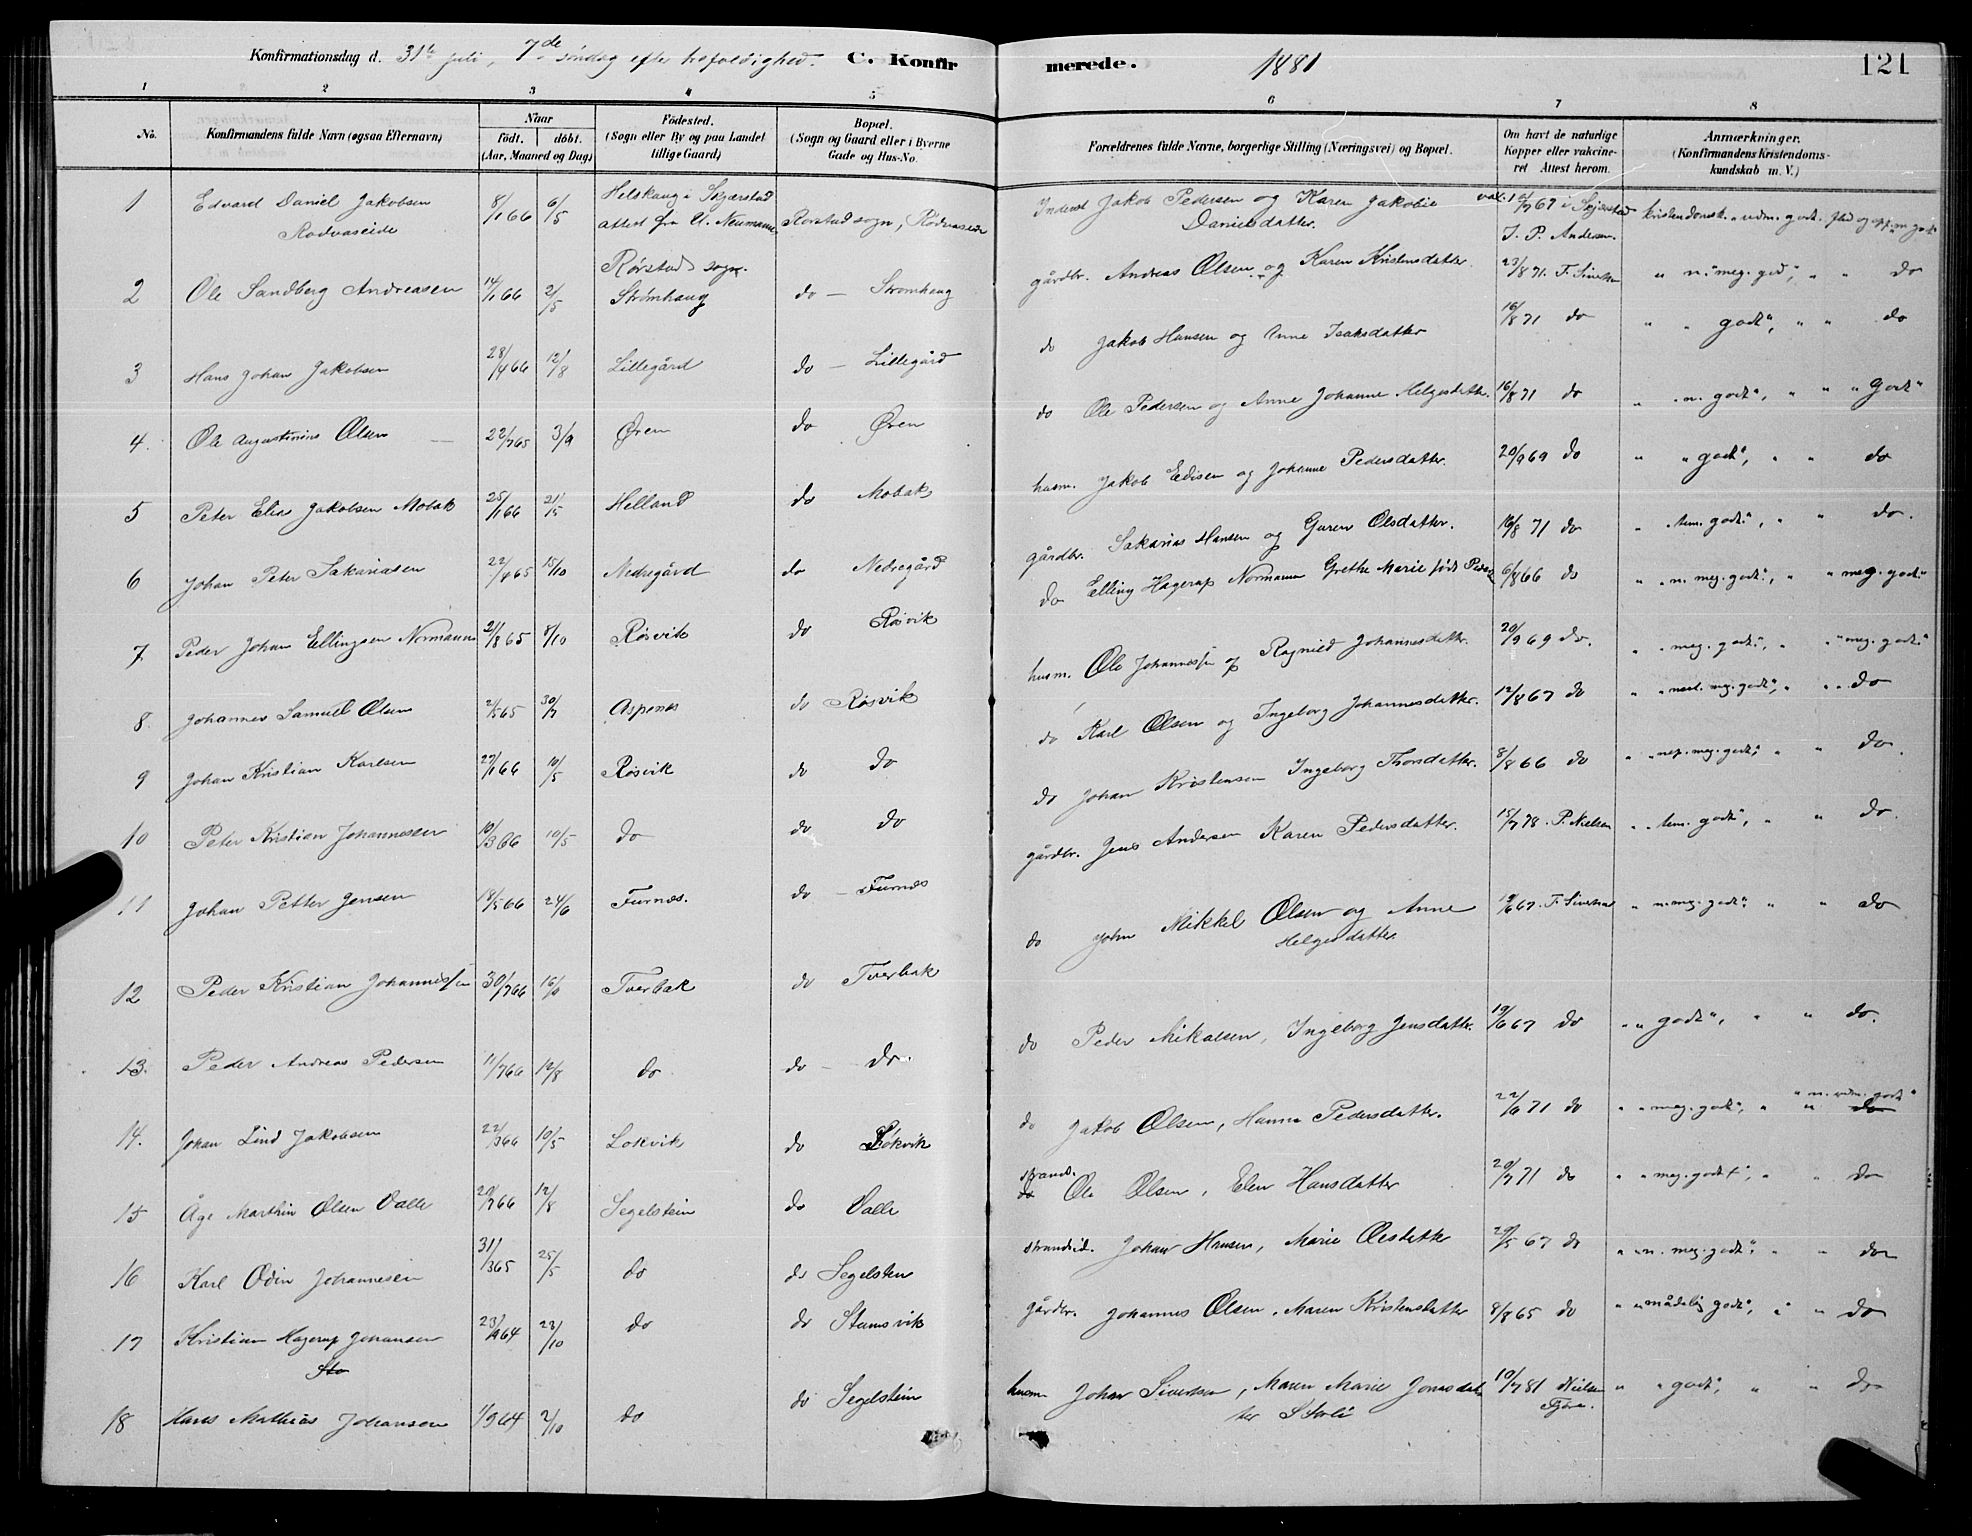 Konfirmationsdag d. 31te juli, 7de søndag efter trefoldighed. C. Konfirmerede. 1881 121
1 2 3 4 5 6 7 8
No. Konfirmandens fulde Navn (ogsaa Efternavn) Naar födt. döbt. (Aar, Maaned og Dag) Födested. (Sogn eller By og paa Landet tillige Gaard) Bopæl. (Sogn og Gaard eller i Byerne Gade og Hus-No. Forældrenes fulde Navne, borgerlige Stilling (Næringsvei) og Bopæl. Om havt de naturlige Kopper eller vakcineret Attest herom. Anmærkninger. (Konfirmandens Kristendomskundskab m. V.)
1 Edvard Daniel Jakobsen Rødvaseide 8/1 66 6/5 Helskaug i Skjærstad attest fra U. Neumann Rørstad sogn, Rødvaseide Inderst Jakob Pedersen og Karen Jakobie Danielsdatter. 67 i Skjærstad J. P. Andersen. kristendomsk. udm. godt. flid og opf. m godt
2 Ole Sandberg Andreasen 14/1 66 2/5 Rørstad sogn. Strømhaug do — Strømhaug gårdbr. Andreas Olsen og Karen Kristensdatter 23/8 71. F. Sivertsen " n. meg. god", " " do
3 Hans Johan Jakobsen 28/4 66 12/8 Lillegård do — Lillegård do Jakob Hansen og Anne Isaksdatter 16/8 71 do " " godt", " " do
4. Ole Augustinius Olsen 22/7 65 3/9 Øren do Øren do Ole Pedersen og Anne Johanne Helgesdatter. 16/8 71 do " n. godt", " " " Godt"
5 Peter Elias Jakobsen Mobak 25/1 66 21/5 Helland do Mobak husm. Jakob Edisen og Johanne Pedersdatter. 20/9 69 do " " godt", " " do
6 Johan Peter Sakariasen 22/4 65 15/10 Nedregård do Nedregård gårdbr. Sakarias Hansen og Guren Olsdatter. 16/8 71 do " " tem. godt", " " do.
7. Peder Johan Ellingsen Normann 21/8 65 8/10 Røsvik do Røsvik do Elling Hagerup Normann Grethe Marie født Peders 6/8 66 do " " n. meg. godt", " " meg. godt"
8. Johannes Samuel Olsen 2/5 65 30/7 Aspenes do Røsvik husm. Ole Johannessen og Ragnild Johannesdatter. 20/9 69 do. " " meg. godt", " " meg. godt"
9 Johan Kristian Karlsen 27/1 66 10/5 Røsvik do do do Karl Olsen og Ingeborg Johannesdatter. 12/8 67 do " " meg. godt", " " do
10 Peter Kristian Johannessen 10/3 66 10/5 do do do do Johan Kristensen Ingeborg Thorsdatter. 8/8 66 do " " meg. godt", " " do.
11 Johan Petter Jensen 18/5 66 24/6 Furnæs. do — Furnæs gårdbr. Jens Andersen Karen Pedersdatter. 15/7 78. P. Nielsen " " tem. godt", " " do.
12 Peder Kristian Johannessen 30/7 66 Tverbak do Tverbak do John Mikkel Olsen og Anne Helgesdatter. 19/6 67. F. Sivertsen " n. meg. godt", " " do
13. Peder Andreas Pedersen 11/7 66 12/8 do do — do. do Peder Mikalsen, Ingeborg Jensdatter. 19/6 67 do " " godt", " " do.
14. Johan Lind Jakobsen 22/3 66 10/5 Løkvik do Løkvik do Jakob Olsen, Hanna Pedersdatter. 22/6 71 do " " meg. godt", " " n. udm. godt" do
15 Åge Marthin Olsen Valle 20/7 66 12/8 Segelstein do Valle strands. do Ole Olsen, Elen Hansdatter 20/7 71 do " " meg. godt", " " do
16 Karl Odin Johannesen 31/3 65 25/5 do do Segelsten strandsid. Johan Hansen, Marie Olesdatter 29/5 67 do " " n. meg. godt", " " do
17 Kristian Hagerup Johansen Sto 23/ 64 23/10 do do Stamsvik gårdbr. Johannes Olsen. Maren Kristensdatter 8/8 65 do " " mådelig godt", " " do
18 Hans Mathias Johansen 1/9 64 2/10 do do Segelstein husm Johan Sivertsen, Maren Marie Jonsdatter Storli 10/7 81 Nielsen " " godt", " " do